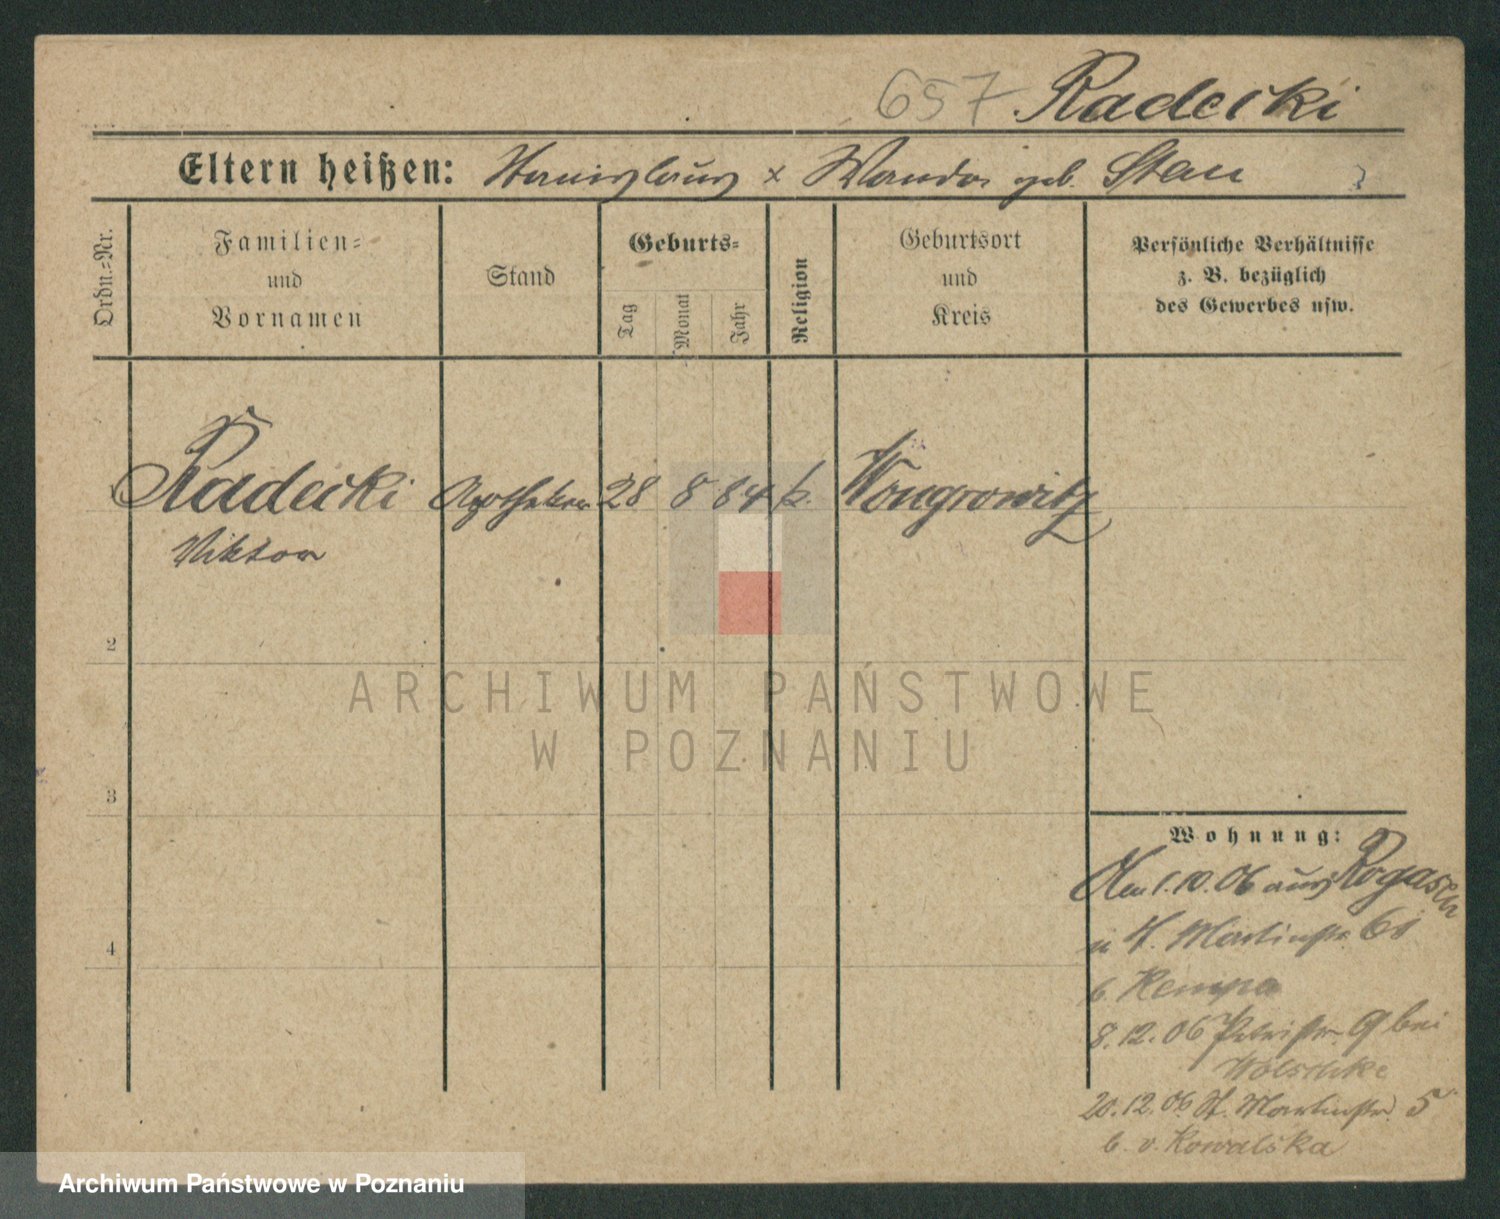 657 Radecki
Eltern heißen: Stanislaus x Wanda geb. Stan
Ordn.=Nr.
Familien=
und
Vornamen
Stand
Geburts=
Tag
Monat
Jahr
Religion
Geburtsort
und
Kreis
Persönliche Verhältnisse
z. B. bezüglich
des Gewerbes usw.
Radecki Apotheker 28 8 84 k. Wongrowitz
Viktor
2
3
4
Wohnung:
1.10.06 aus Rogasen
n. St. Martinstr.
b. Kempa
8.12.06 Petristr. 9 bei
Wolschke
20.12.06 St. Martinstr. 5
b. v. Kowalska
ARCHIWUM PAŃSTWOWE
W POZNANIU
Archiwum Państwowe w Poznaniu